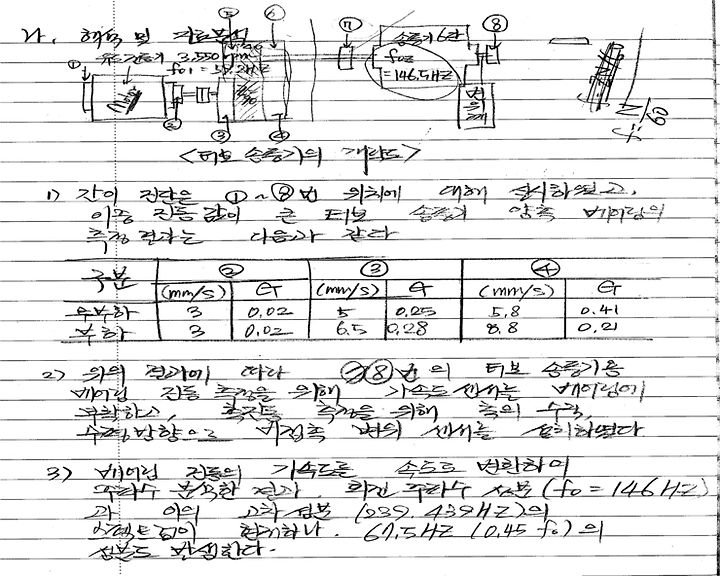 나. 해독 및 진단분석
유도전동기 3,550rpm
f01 = 59.2HZ
① ② ③ ④ ⑤ ⑥ ⑦ ⑧
Motor
송풍기 6단
f02
=146.5HZ
<터보 송풍기의 개략도>
1) 간이 진단은 ①~⑧번 위치에 대해 실시하였고,
이중 진동값이 큰 터보 송풍기 양측 베어링의
측정결과는 다음과 같다
구분 ② ③ ④
(mm/s) G (mm/s) G (mm/s) G
무부하 3 0.02 5 0.25 5.8 0.41
부하 3 0.02 6.5 0.28 8.8 0.21
2) 위의 결과에 따라 ⑧번의 터보 송풍기용
베어링 진동 측정을 위해 가속도센서는 베어링에
부착하고, 축진동 측정을 위해 축의 수직,
수평방향으로 비접촉 변위 센서를 설치하였다
3) 베어링 진동의 가속도를 속도로 변환하여
주파수 분석한 결과, 회전 주파수 성분(f0=146HZ)
과 이의 고차성분 439HZ)의
스펙트럼이 현저하나, 67.5HZ (0.45f0)의
성분도 발생한다.